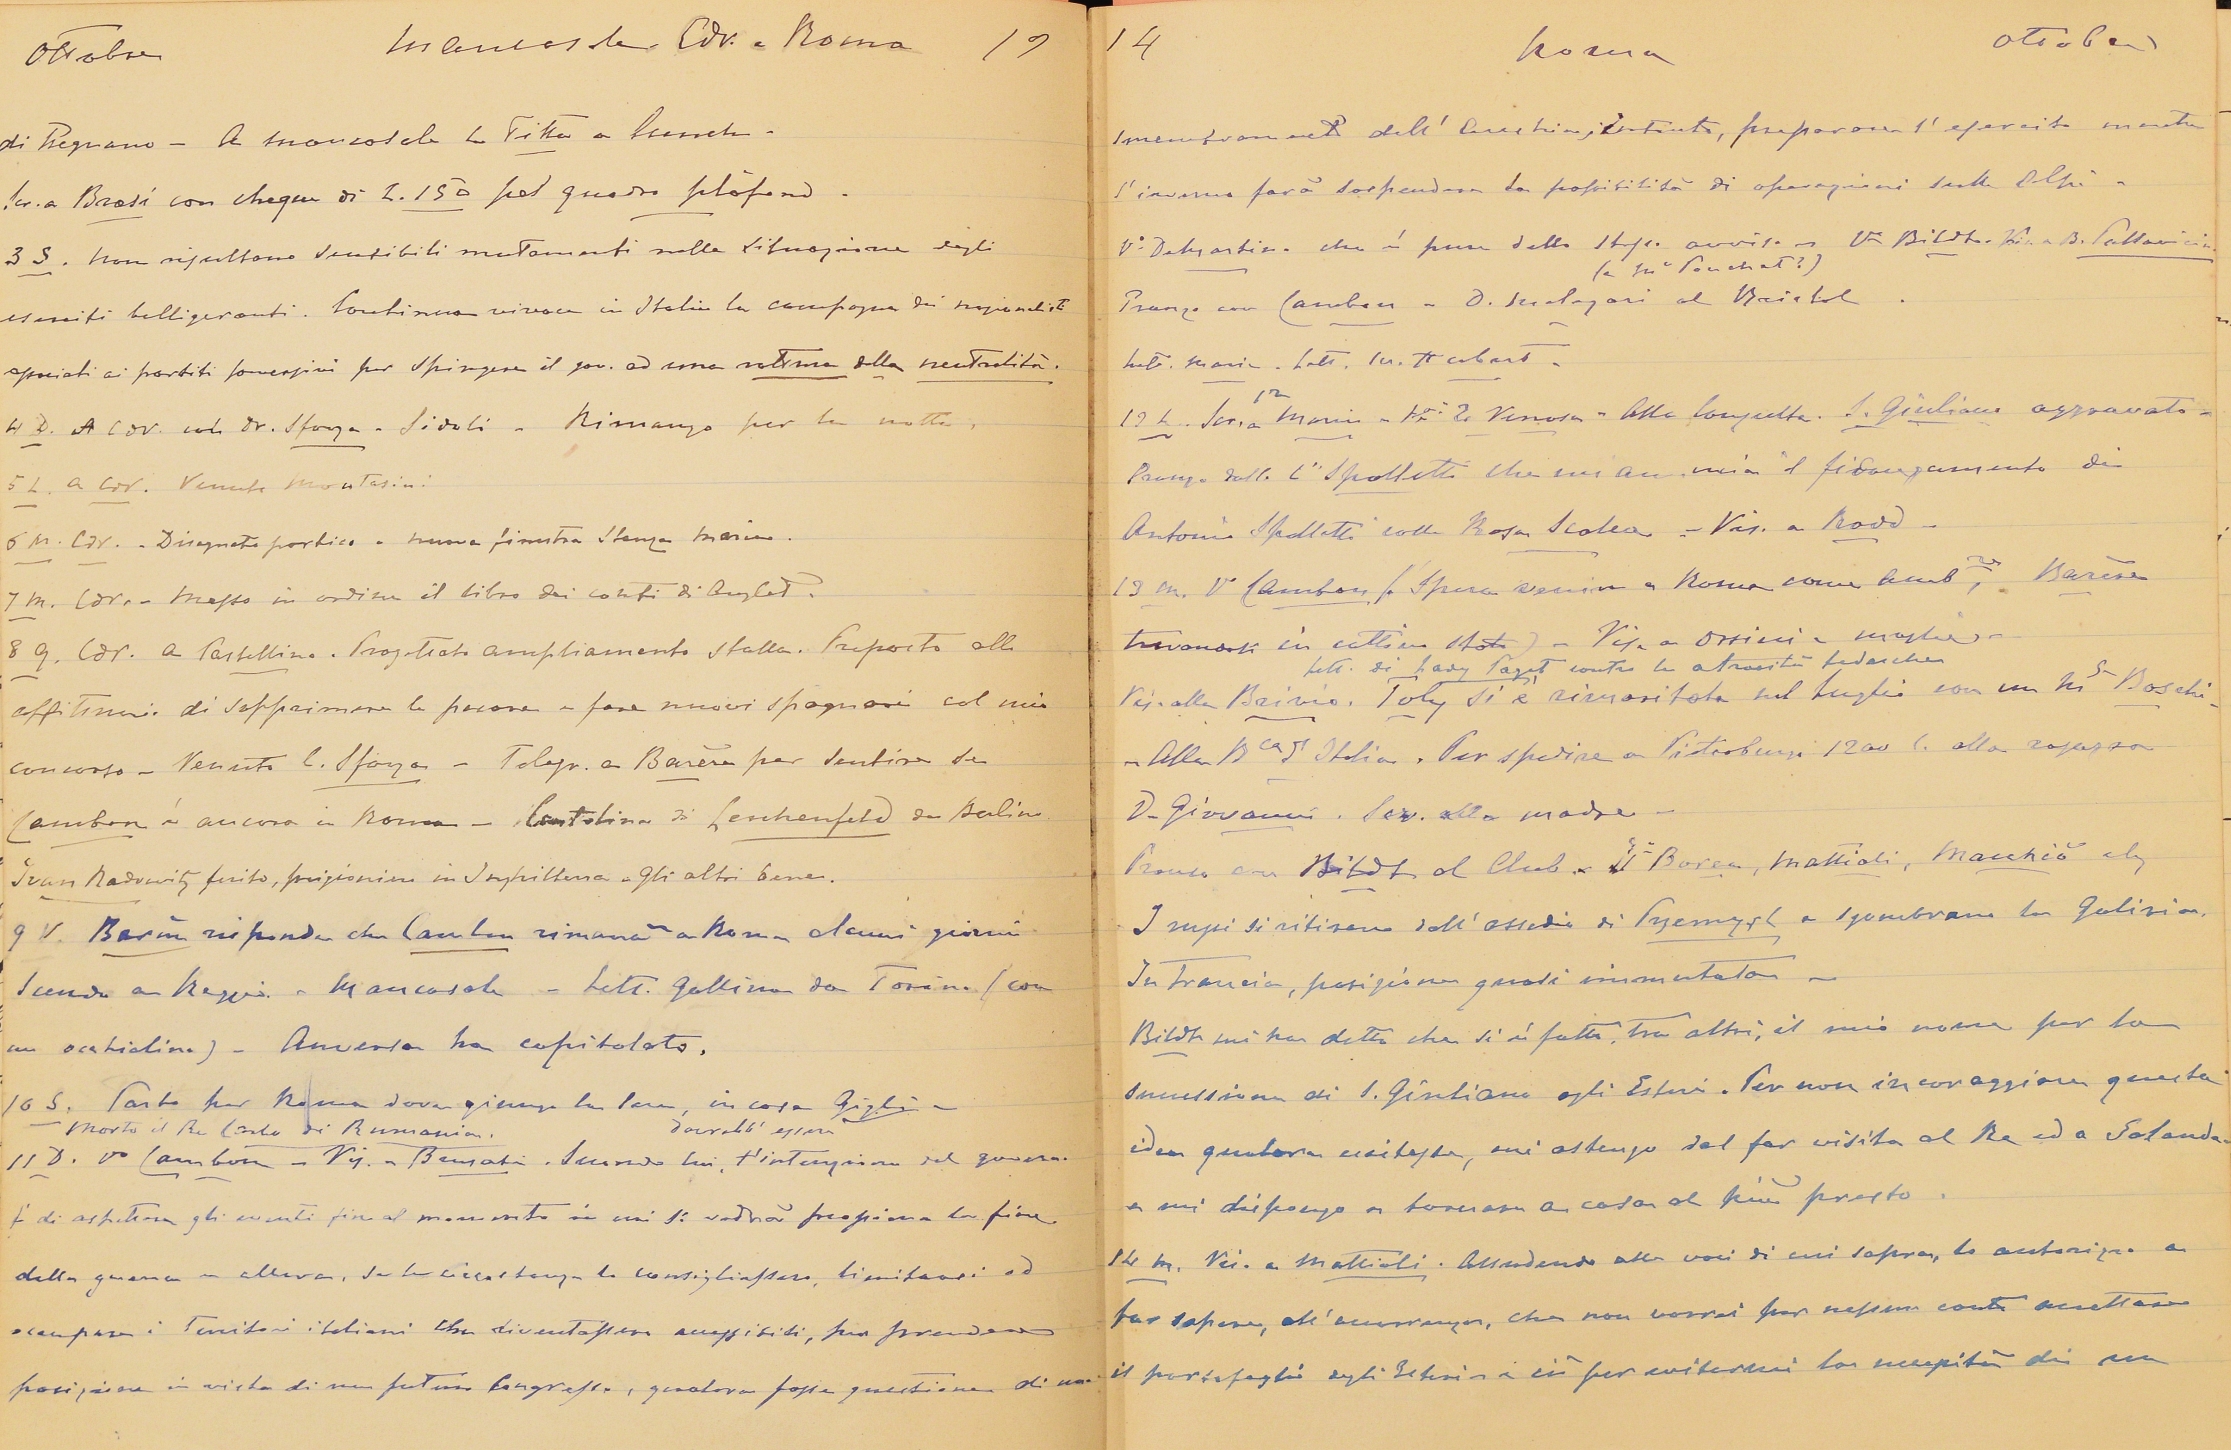 Ottobre Mancasale Cdv. e Roma 19
di Regnano - A Mancasale la Titta a
Scr. a Brasi con cheque di L. 150 pel quadro plafond -
3 S. Non risultano sensibili mutamenti nella situazione degli
eserciti belligeranti. Continua vivace in Italia la campagna dei nazionalisti
associati ai partiti sovversivi per spingere il gov. ad una rottura della neutralità.
4 D. A Cdv. col dr. Sforza - Sidoli - Rimango per la notte.
5 L. a Cdv. Venuto Montasini
6 M. Cdv. - Disegnato portico e nuova finestra stanza Maria.
7 M. Cdv. - Messo in ordine il libro dei conti di
8 G. Cdv. a Castellina. Progettato ampliamento stalla. Proposto allo
affittuario di sopprimere le pecore e fare nuovi spagnari col mio
concorso - Venuto C. Sforza - Telegr. a Barère per sentire se
Cambon è ancora a Roma - Cartolina di Lerchenfeld da Berlino.
Ivan Radowitz ferito, prigioniero in Inghilterra - Gli altri bene.
9 V. Barère risponde che Cambon rimarrà a Roma alcuni giorni
Scendo a Reggio - Mancasale - Lett. Gallina da Torino (con
un occhialino) - Anversa ha capitolato.
10 S. Parto per Roma dove giungo la sera, in casa Giglio -
Morto il Re Carlo di Rumania. dovrebb' essere
11 D. Vo Cambon - Vis. a . Secondo lui, l'intenzione del governo
è di aspettare gli eventi fino al momento in cui si vedrà prossima la fine
della guerra e allora, se le circostanze lo consigliassero, limitarsi ad
occupare i Territori italiani che diventassero accessibili, per prendere
posizione in vista di un futuro Congresso, qualora fosse questione di uno
14 Roma Ottobre
smembramento dell' Austria; intanto, preparare l'esercito mentre
l'inverno farà sospendere la possibilità di operazioni sulle Alpi -
Vo DeMartino che è pure dello stesso avviso - Vo Bildt. Vis. a B. Pallavicini
(a Me Ponchat?)
Pranzo con Cambon e D. Malagari al Bristol.
Lett. Maria. Lett. Hubert -
12 L. Scr. a Maria - Alla Consulta. S. Giuliano aggravato -
Pranzo dalla Ca Spalletti che mi annuncia il fidanzamento di
Antonio Spalletti colla Rosa Scalea - Vis. a Rodd -
13 M. Vo Cambon (Spera venire a Roma come Ambre, Barère
trovandosi in cattivo stato) - Vis. a Orsini e moglie -
Lett. di Lady Paget contro le atrocità tedesche
Vis. alla Brivio. Toly si è rimaritata nel luglio con un Mse Boschi -
- Alla Bca d'Italia. Per spedire a Pietroburgo 1200 l. alla ragazza
D. Giovanni. Scr. alla madre -
Pranzo con Bildt al Club. Borea, Mattioli, Macchiò ecc
I russi si ritirano dall' assedio di Przemysl e sgombrano la Galizia.
In Francia, posizione quasi immutata -
Bildt mi ha detto che si è fatto, tra altri, il mio nome per la
successione di S. Giuliano agli Esteri. Per non incoraggiare questa
idea qualora esistesse, mi astengo dal far visita al Re ed a Salandra
e mi dispongo a tornare a casa al più presto.
14 M. Vis. a Mattioli. Alludendo alle voci di cui sopra, lo autorizzo a
far sapere, all' occorrenza, che non vorrei per nessun conto accettare
il portafoglio degli Esteri e ciò per evitarmi la necessità di un